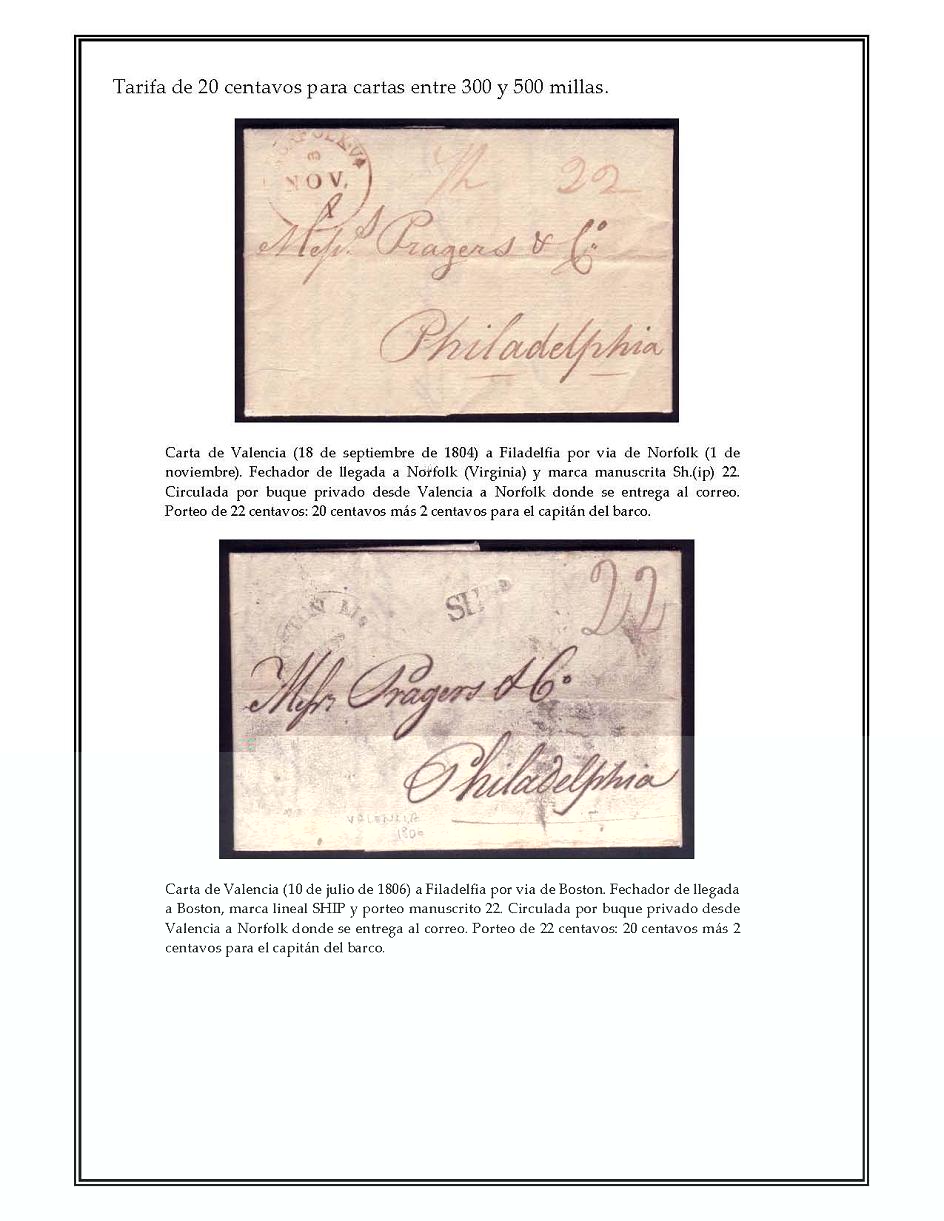 Tarifa de 20 centavos para cartas entre 300 y 500 millas.
NORFOLK·VA
NOV.
Sh 22
Messrs. Pragers & Co.
Philadelphia
Carta de Valencia (18 de septiembre de 1804) a Filadelfia por via de Norfolk (1 de
noviembre). Fechador de llegada a Norfolk (Virginia) y marca manuscrita Sh.(ip) 22.
Circulada por buque privado desde Valencia a Norfolk donde se entrega al correo.
Porteo de 22 centavos: 20 centavos más 2 centavos para el capitán del barco.
22
SHIP
BOSTON Ms
Messrs. Pragers & Co.
Philadelphia
VALENCIA
Carta de Valencia (10 de julio de 1806) a Filadelfia por via de Boston. Fechador de llegada
a Boston, marca lineal SHIP y porteo manuscrito 22. Circulada por buque privado desde
Valencia a Norfolk donde se entrega al correo. Porteo de 22 centavos: 20 centavos más 2
centavos para el capitán del barco.